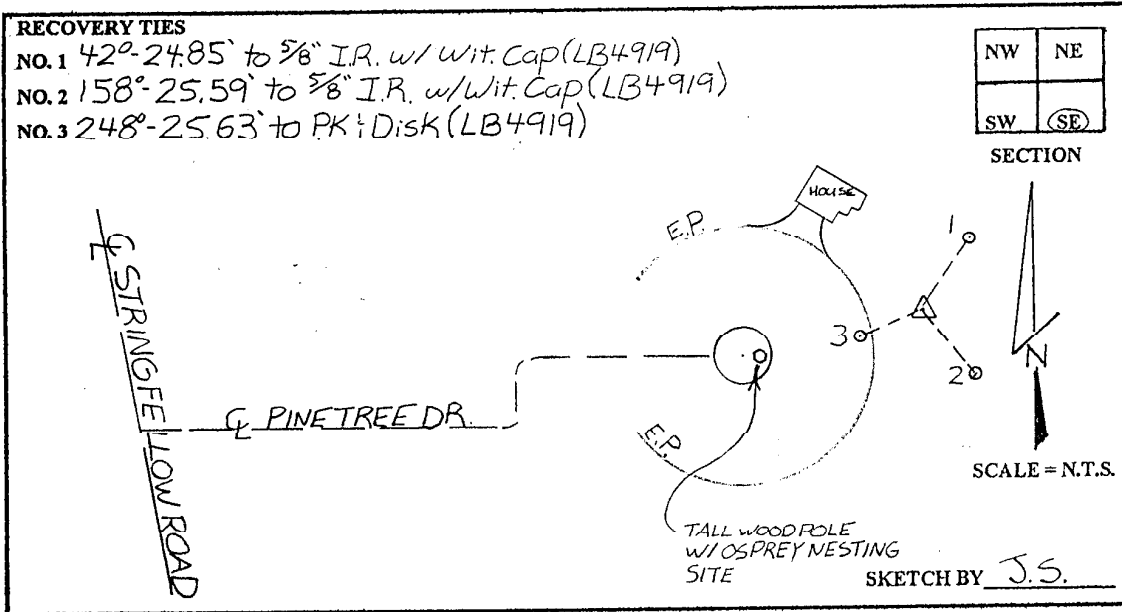 RECOVERY TIES
NO. 1 42°-24.85' to 5/8" I.R. w/ Wit. Cap (LB4919)
NO. 2 158°-25.59' to 5/8" I.R. w/ Wit. Cap (LB4919)
NO. 3 248°-25.63' to P.K. & Disk (LB4919)
NW NE
SW SE
SECTION
HOUSE
E.P.
1
℄ STRINGFELLOW ROAD
3
N
2
℄ PINETREE DR.
E.P.
SCALE = N.T.S.
TALL WOOD POLE
W/ OSPREY NESTING
SITE
SKETCH BY J.S.